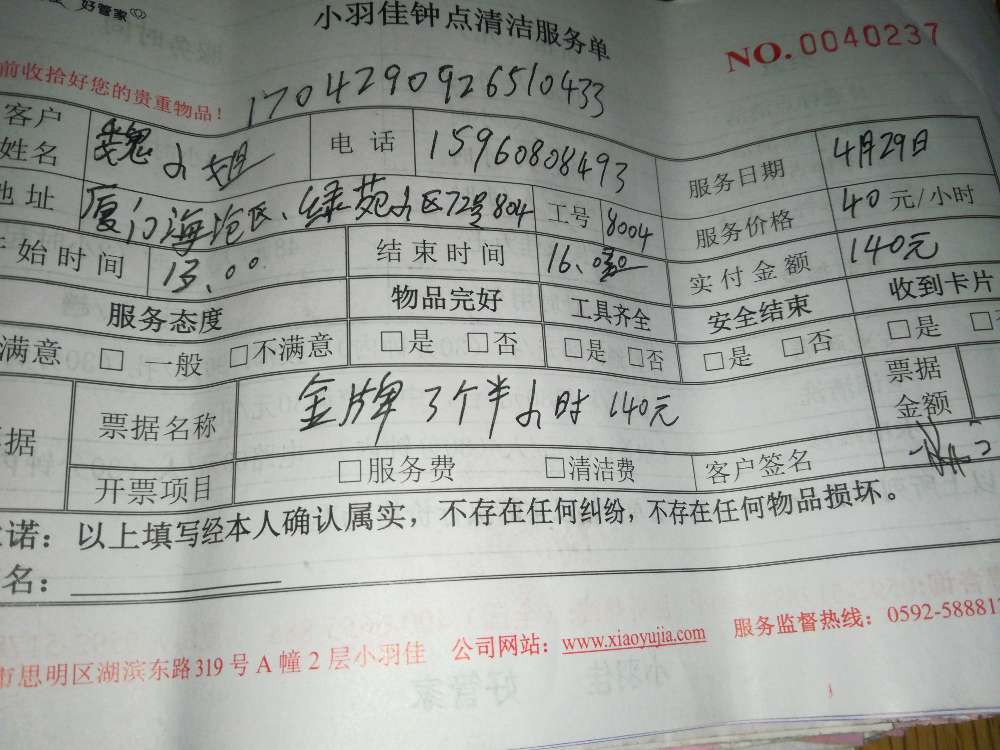 好管家
小羽佳钟点清洁服务单
NO.0040237
前收拾好您的贵重物品！
1704290926510433
客户姓名 魏小姐 电话 15960808493 服务日期 4月29日
地址 厦门海沧区、绿苑小区72号804 工号 8004 服务价格 40元/小时
开始时间 13.00 结束时间 16. 实付金额 140元
服务态度 物品完好 工具齐全 安全结束 收到卡片
满意 □一般 □不满意 □是 □否 □是 □否 □是 □否 □是 □否
票据名称 金牌3个半小时140元 票据金额
开票项目 □服务费 □清洁费 客户签名
诺：以上填写经本人确认属实，不存在任何纠纷，不存在任何物品损坏。
名：
市思明区湖滨东路319号A幢2层小羽佳 公司网站：www.xiaoyujia.com 服务监督热线：0592-588813